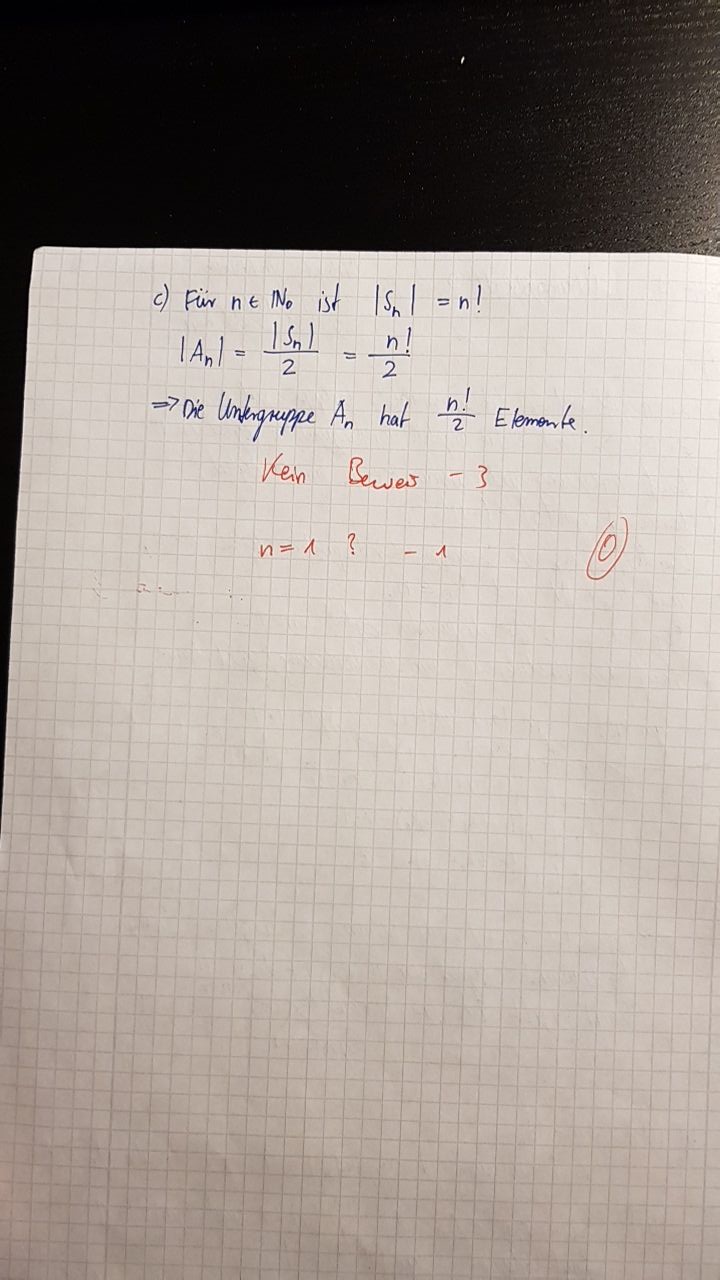 c) Für n ∈ ℕ₀ ist |Sₙ| = n!
|Aₙ| = |Sₙ|/2 = n!/2
⇒ Die Untergruppe Aₙ hat n!/2 Elemente.
Kein Beweis - 3
n = 1 ? - 1
0